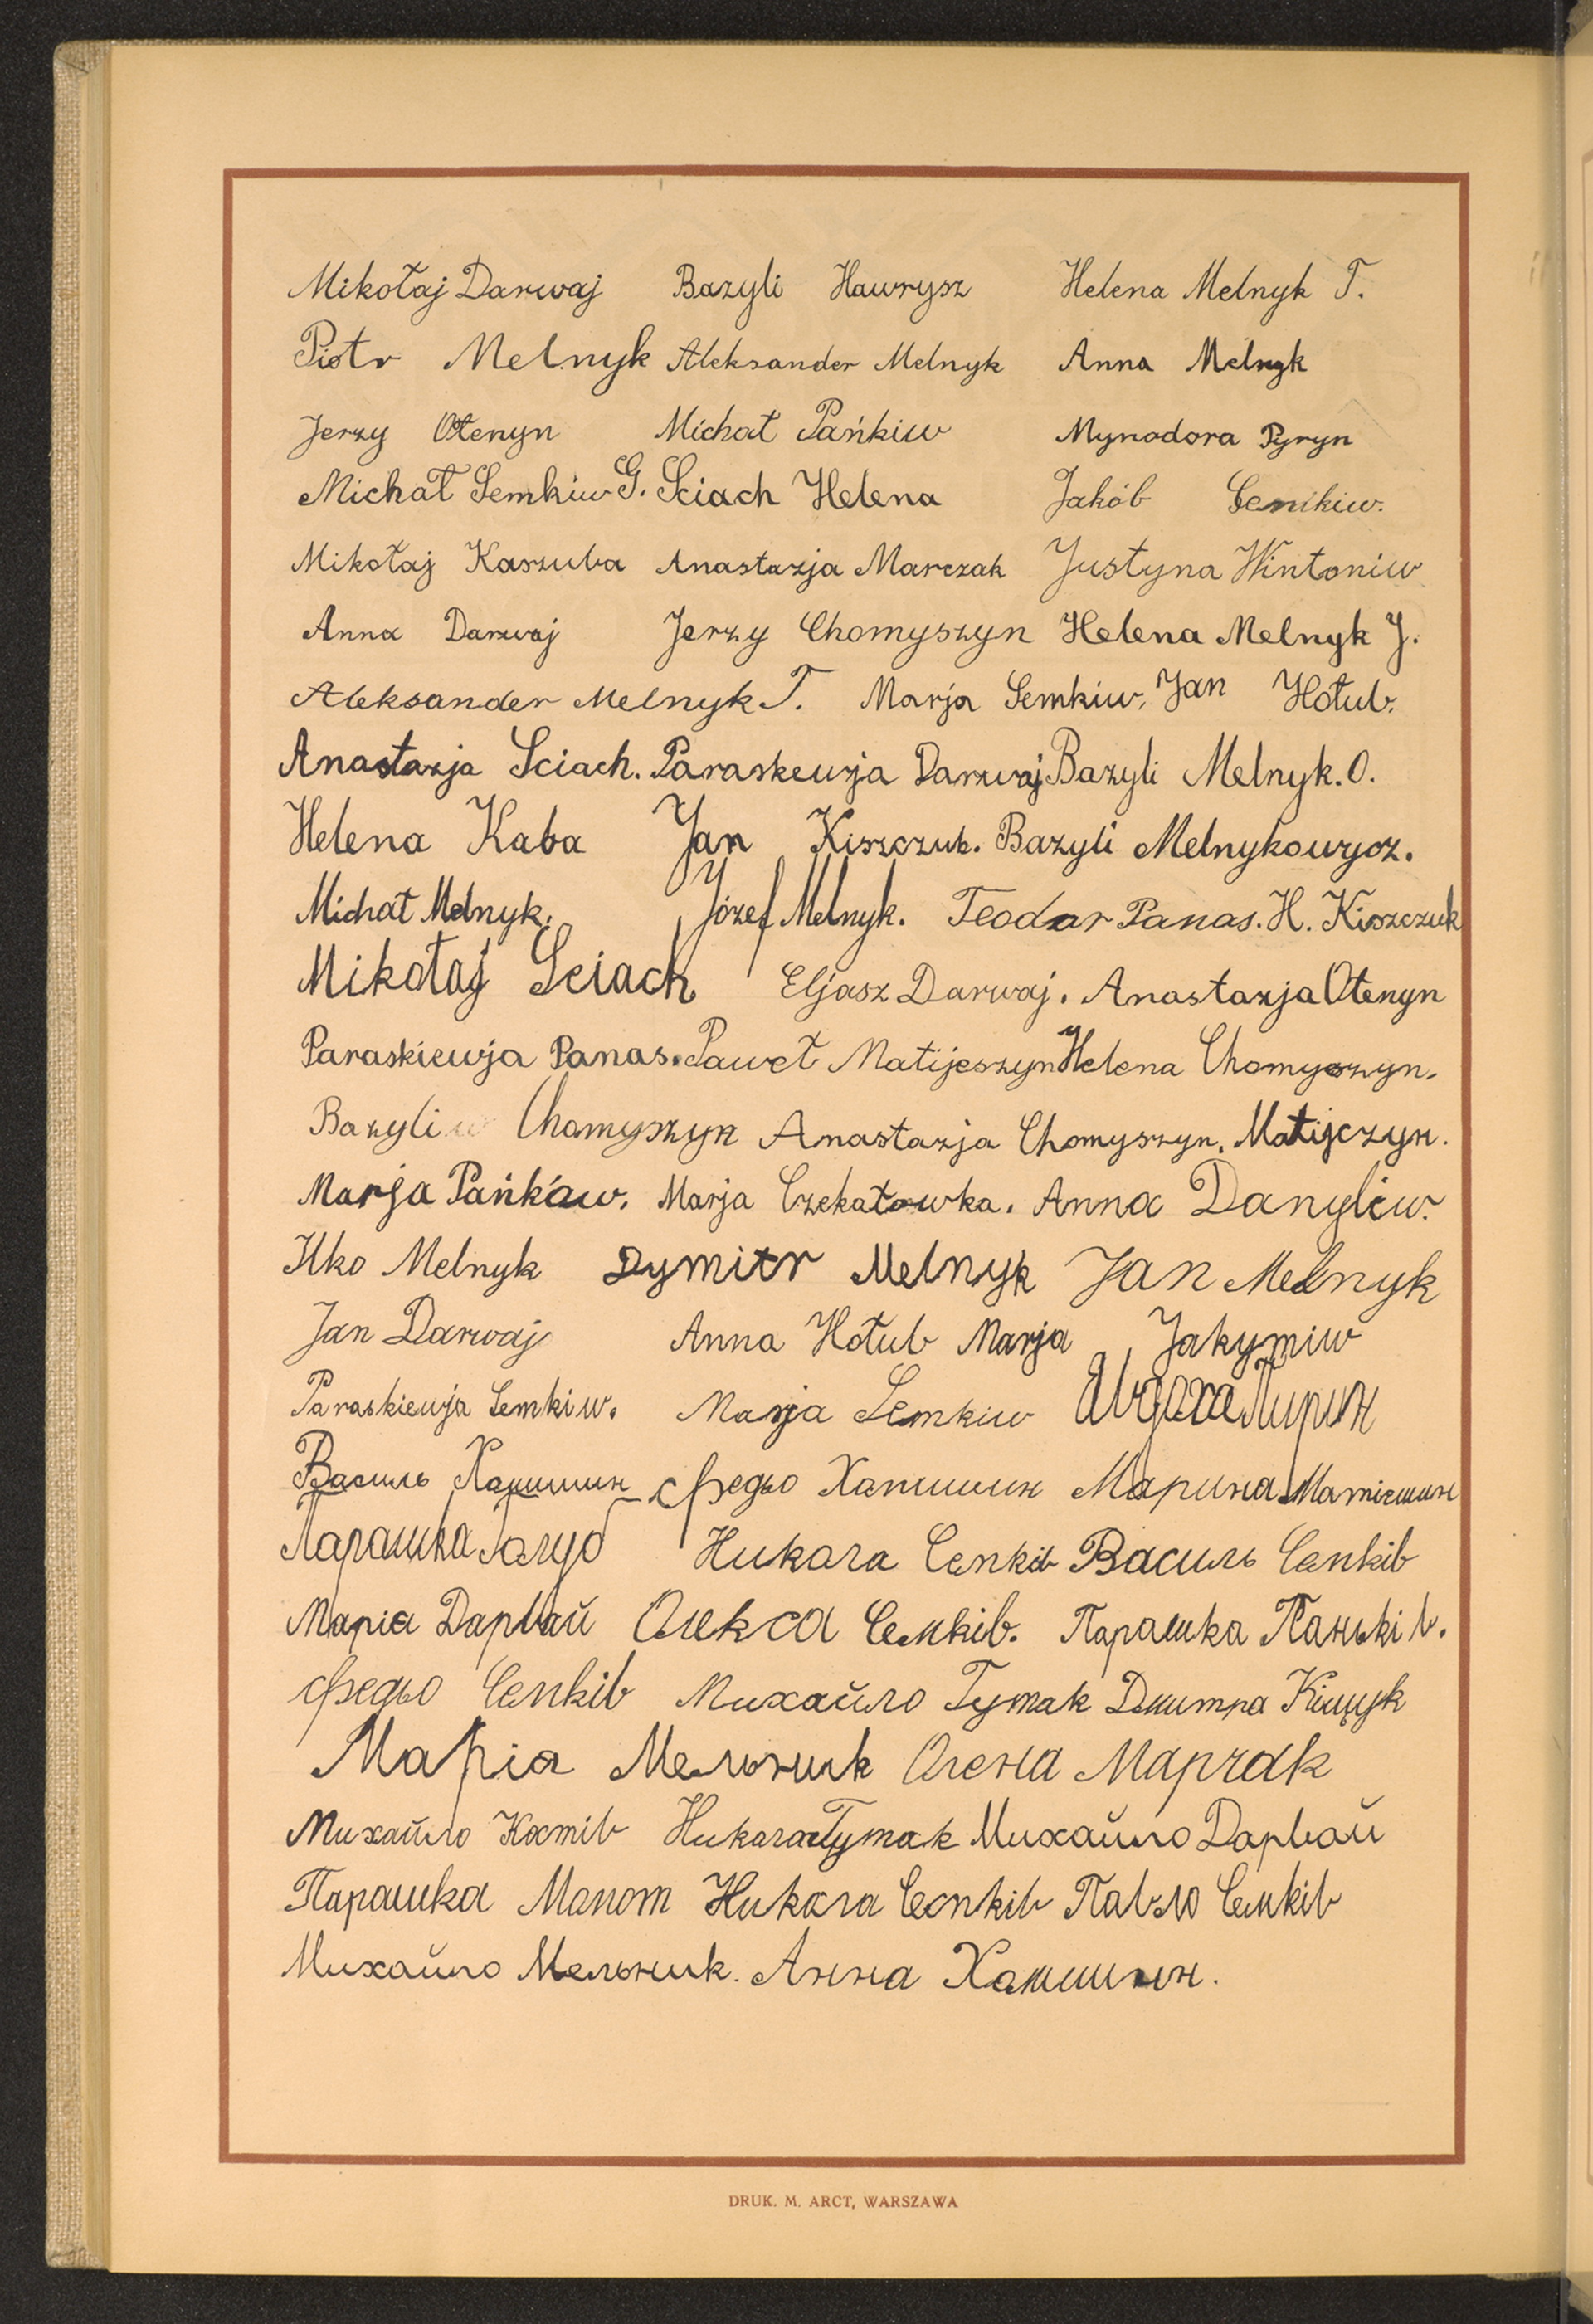 Mikołaj Darwaj Bazyli Hawrysz Helena Melnyk T.
Piotr Melnyk Aleksander Melnyk Anna Melnyk
Jerzy Otenyn Michał Pańkiw Mynodora Pyryn
Michał Semkiw G. Sciach Helena Jakób Semkiw.
Mikołaj Kaszuba Anastazja Marczak Justyna Wintoniw
Anna Darwaj Jerzy Chomyszyn Helena Melnyk J.
Aleksander Melnyk T. Marja Semkiw, Jan Hołub.
Anastazja Sciach. Paraskewja Darwaj Bazyli Melnyk. O.
Helena Kaba Jan Kiszczuk. Bazyli Melnykowycz.
Michał Melnyk. Józef Melnyk. Teodor Panas. H. Kiszczuk
Mikołaj Sciach Eljasz Darwaj. Anastazja Otenyn
Paraskiewja Panas. Paweł Matijeszyn Helena Chomyszyn.
Bazyli Chomyszyn Anastazja Chomyszyn. Matijczyn.
Marja Pańkiw. Marja Czekałowka. Anna Danyliw.
Ilko Melnyk Dymitr Melnyk Jan Melnyk
Jan Darwaj Anna Hołub Marja Jakymiw
Paraskiewja Semkiw. Marja Semkiw Пирин
Василь Хамишин Федьо Хамишин Марина Матіешин
Парашка Голуб Никола Семків Василь Семків
Марія Дарвай Олекса Семків. Парашка Паньків.
Федьо Семків Михайло Гутак Дмитро Кіщук
Марія Мельник Олена Марчак
Михайло Костів Никола Гутак Михайло Дарвай
Парашка Никола Семків Павло Семків
Михайло Мельник. Анна Хамишин.
DRUK. M. ARCT, WARSZAWA